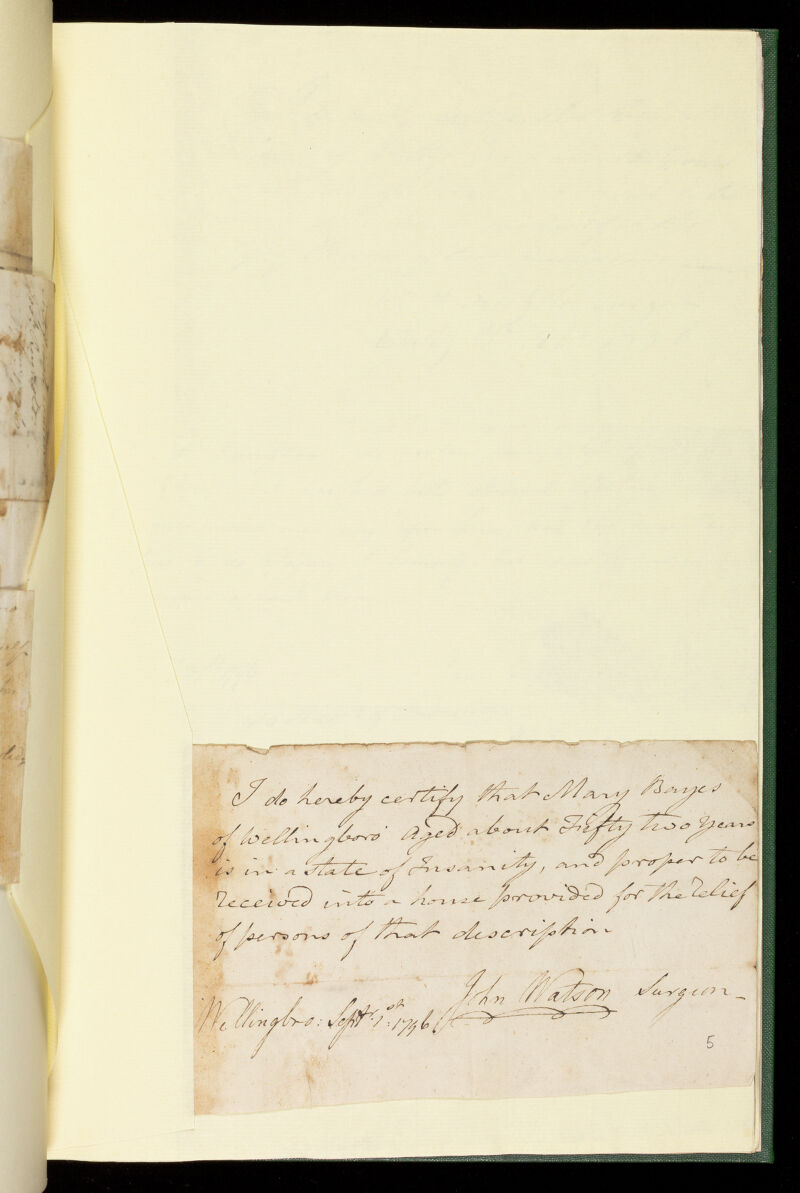 I do hereby certify that Mary Bayes
of Wellingboro' Aged about Fifty two years
is in a state of Insanity, and proper to be
received into a house provided for the relief
of persons of that description
John Watson Surgeon
Wellingbro: Septr. 1st: 1796
5